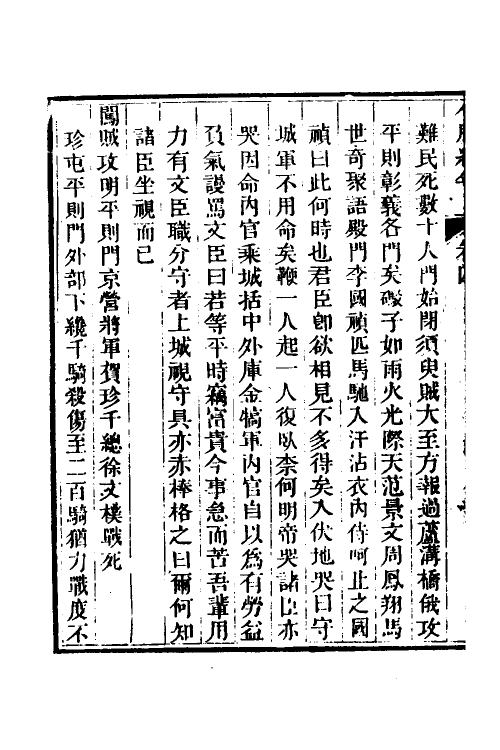 卷四
難民死數十人門始閉須臾賊大至方報過蘆溝橋俄攻
平則彰義各門矣礮子如雨火光際天范景文周鳳翔馬
世奇聚語殿門李國禎匹馬馳入汗沾衣內侍呵止之國
禎曰此何時也君臣卽欲相見不多得矣入伏地哭曰守
城軍不用命矣鞭一人起一人復臥柰何明帝哭諸臣亦
哭因命內官乘城括中外庫金犒軍內官自以爲有勞益
負氣謾罵文臣曰若等平時竊富貴今事急而苦吾輩用
力有文臣職分守者上城視守具亦赤棒格之曰爾何知
諸臣坐視而已
闖賊攻明平則門京營將軍賀珍千總徐文樸戰死
珍屯平則門外部下纔千騎殺傷至二百騎猶力戰度不